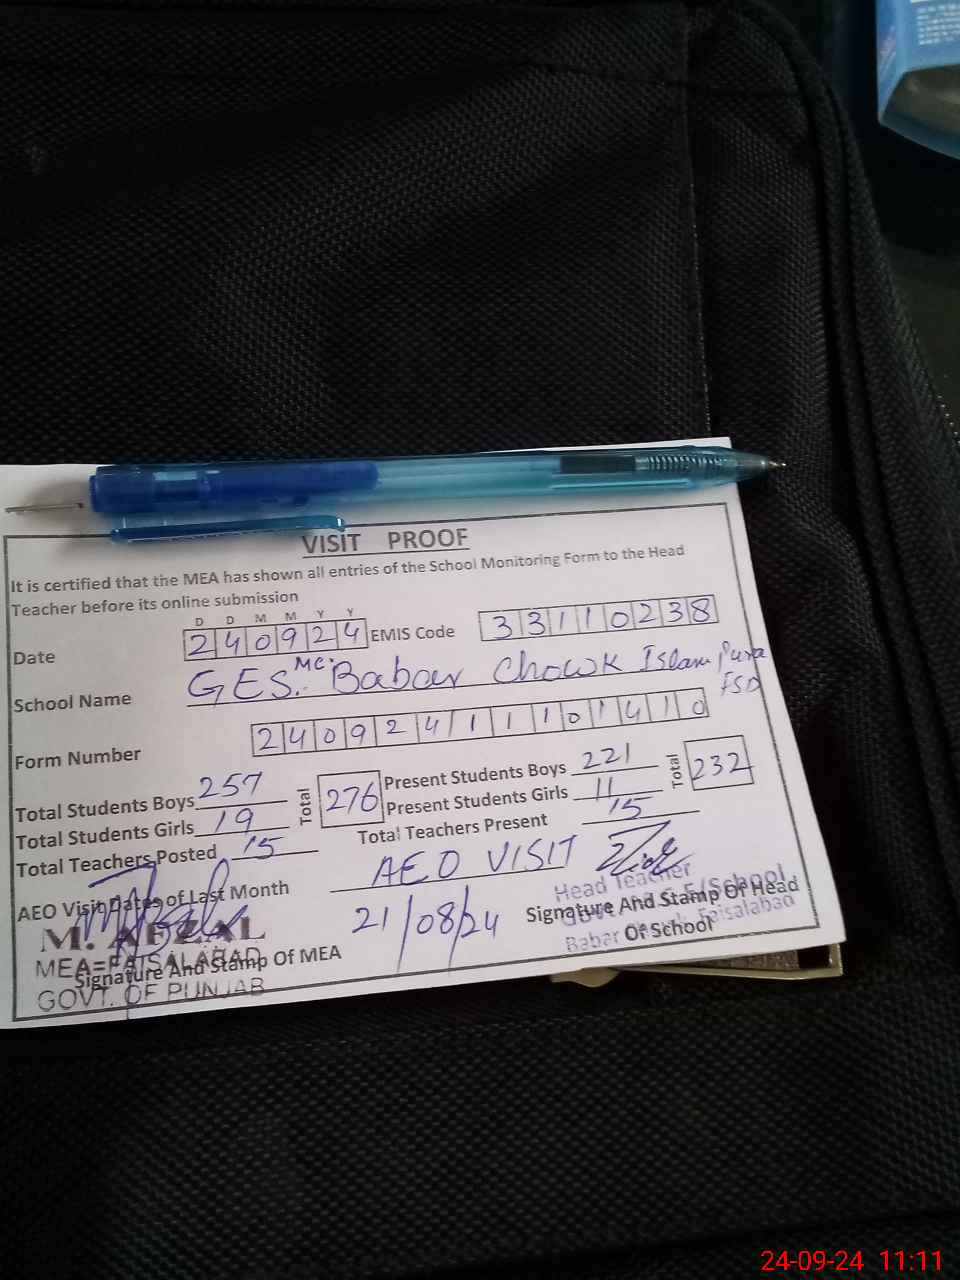 VISIT PROOF
It is certified that the MEA has shown all entries of the School Monitoring Form to the Head
Teacher before its online submission
D D M M Y Y
Date 240924 EMIS Code 33110238
School Name GES. MC. Babar Chowk Islam Pura
FSD
Form Number 240924111101410
Total Students Boys 257 Present Students Boys 221
Total Students Girls 19 Total 276 Present Students Girls 11 Total 232
Total Teachers Posted 15 Total Teachers Present 15
AEO Visit Dates of Last Month AEO VISIT
21/08/24
Head Teacher
Signature And Stamp Of Head
E/School
Babar Faisalabad
Of School
M. AFZAL
MEA=FAISALABAD
Signature And Stamp Of MEA
GOVT. OF PUNJAB
24-09-24 11:11